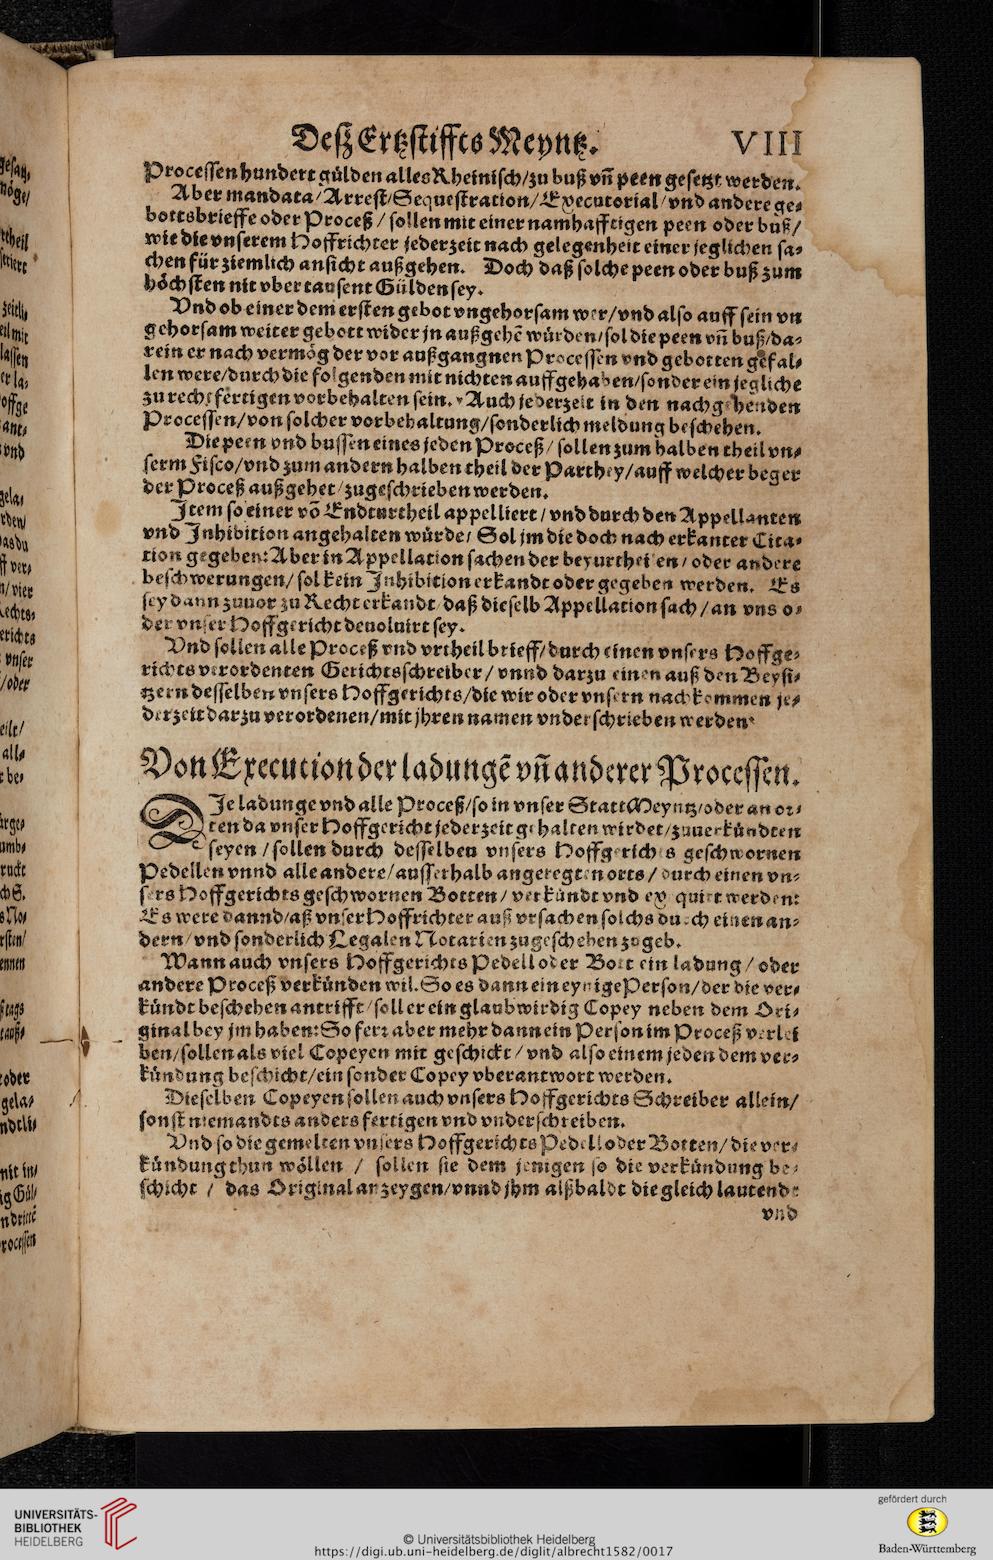 Deß Ertzstiffts Meyntz. VIII
Processen hundert gülden alles Rheinisch/zu buß vn̄ peen gesetzt werden.
Aber mandata/Arrest/Sequestration/Executorial/vnd andere ge⸗
bottsbrieffe oder Proceß/ sollen mit einer namhafftigen peen oder buß/
wie die vnserem Hoffrichter jederzeit nach gelegenheit einer jeglichen sa⸗
chen für ziemlich ansicht außgehen. Doch daß solche peen oder buß zum
höchsten nit vber tausent Gülden sey.
Vnd ob einer dem ersten gebot vngehorsam wer/vnd also auff sein vn
gehorsam weiter gebott wider jn außgehē würden/sol die peen vn̄ buß/da⸗
rein er nach vermög der vor außgangnen Processen vnd gebotten gefal⸗
len were/durch die folgenden mit nichten auffgehaben/sonder ein jegliche
zu rechtfertigen vorbehalten sein. Auch jederzeit in den nachgehenden
Processen/von solcher vorbehaltung/sonderlich meldung beschehen.
Die peen vnd bussen eines jeden Proceß/ sollen zum halben theil vn⸗
serm Fisco/vnd zum andern halben theil der Parthey/auff welcher beger
der Proceß außgehet/zugeschrieben werden.
Item so einer vō Endturtheil appelliert/ vnd durch den Appellanten
vnd Inhibition angehalten würde/ Sol jm die doch nach erkanter Cita⸗
tion gegeben: Aber in Appellation sachen der beyurtheilen/ oder andere
beschwerungen/ sol kein Inhibition erkandt oder gegeben werden. Es
sey dann zuuor zu Recht erkandt/daß dieselb Appellation sach/an vns o⸗
der vnser Hoffgericht deuoluirt sey.
Vnd sollen alle Proceß vnd vrtheil brieff/durch einen vnsers Hoffge⸗
richts verordenten Gerichtsschreiber/ vnnd darzu einen auß den Beysi⸗
tzern desselben vnsers Hoffgerichts/die wir oder vnsern nachkommen je⸗
derzeit darzu verordenen/mit jhren namen vnderschrieben werden.
Von Execution der ladungē vn̄ anderer Processen.
DIe ladunge vnd alle Proceß/so in vnser Statt Meyntz/oder an or⸗
ten da vnser Hoffgericht jederzeit gehalten wirdet/zuuerkündten
seyen/ sollen durch desselben vnsers Hoffgerichts geschwornen
Pedellen vnnd alle andere/ausserhalb angeregten orts/ durch einen vn⸗
sers Hoffgerichts geschwornen Botten/ verkündt vnd exequirt werden:
Es were dannd/aß vnser Hoffrichter auß vrsachen solchs durch einen an⸗
dern/vnd sonderlich Legalen Notarien zugeschehen zugeb.
Wann auch vnsers Hoffgerichts Pedell oder Bott ein ladung/ oder
andere Proceß verkünden wil. So es dann ein eynige Person/der die ver⸗
kündt beschehen antrifft/soll er ein glaubwirdig Copey neben dem Ori⸗
ginal bey jm haben: So fern aber mehr dann ein Person im Proceß verlei
ben/sollen als viel Copeyen mit geschickt/ vnd also einem jeden dem ver⸗
kündung beschicht/ein sonder Copey vberantwort werden.
Dieselben Copeyen sollen auch vnsers Hoffgerichts Schreiber allein/
sonst niemandts anders fertigen vnd vnderschreiben.
Vnd so die gemelten vnsers Hoffgerichts Pedell oder Botten/ die ver⸗
kündung thun wöllen / sollen sie dem jenigen so die verkündung be⸗
schicht / das Original anzeygen/vnnd jhm alßbaldt die gleich lautende
vnd
UNIVERSITÄTS-
BIBLIOTHEK
HEIDELBERG
© Universitätsbibliothek Heidelberg
https://digi.ub.uni-heidelberg.de/diglit/albrecht1582/0017
gefördert durch
Baden-Württemberg